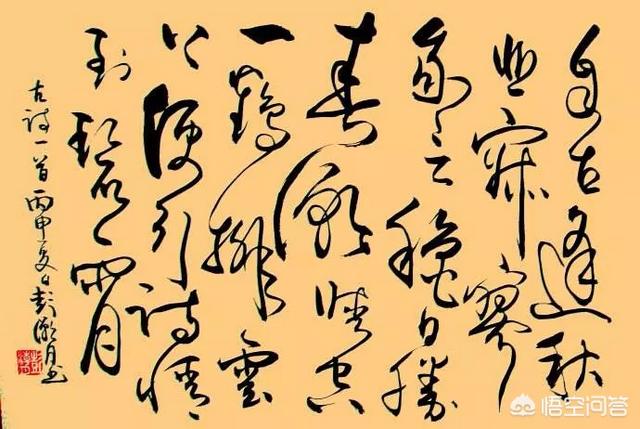 自古逢秋
悲寂寥
我言穐日勝
春朝晴空
一鶴排雲
上便引詩情
到碧霄
古詩一首丙申夏日彭月书
悟空问答